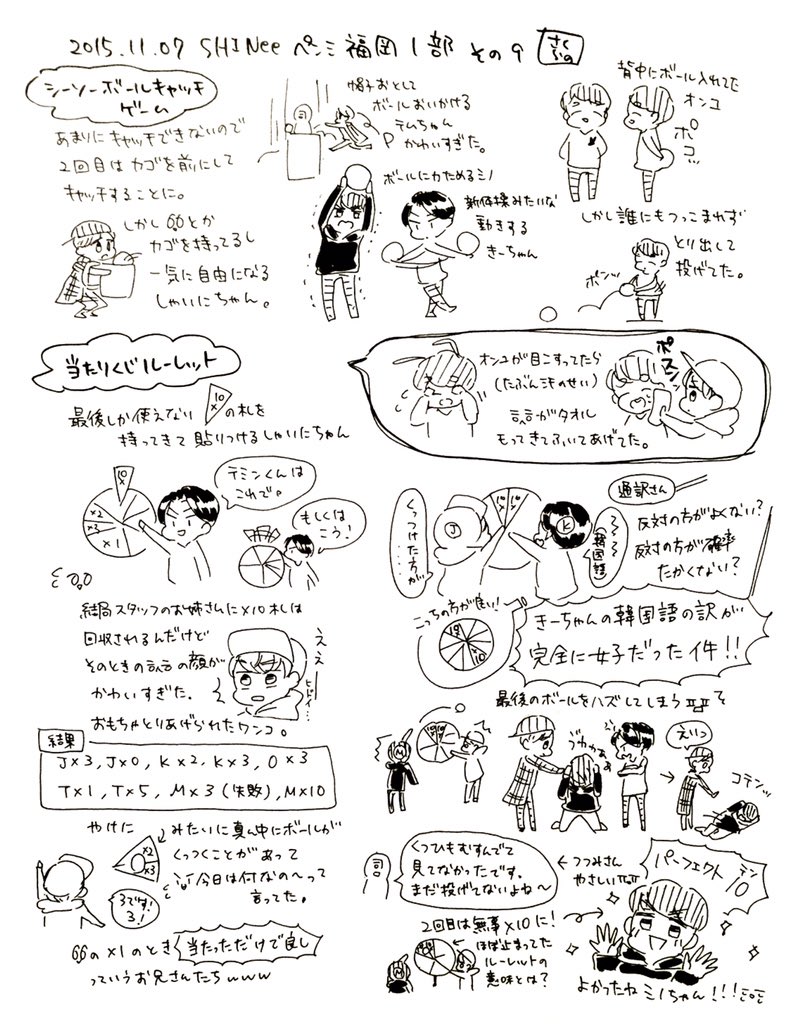 2015.11.07 SHINee ペンミ 福岡1部 その9
さくふの
シーソーボールキャッチ
ゲーム
あまりにキャッチできないので
2回目はカゴを前にして
キャッチすることに。
帽子おとして
ボールおいかける
テムちゃん
かわいすぎた。
背中にボール入れてた
オンユ
ポコッ
ボールに力ためるミノ
新体操みたいな
動きする
きーちゃん
しかし
とか
カゴを持ってるし
一気に自由になる
しゃいにちゃん。
しかし誰にもつっこまれず
とり出して
投げてた。
ポンッ
当たりくじルーレット
最後しか使えない
10
x
の札を
持ってきて貼りつけるしゃいにちゃん
オンユが目こすってたら
(たぶん汗のせい)
がタオル
もってきてふいてあげてた。
ポスッ
10
x
x2
x2
x1
テミンくんは
これで。
もしくは
こう!
通訳さん
くっつけた方が
J
K
韓国語
反対の方がよくない?
反対の方が確率
たかくない?
こっちの方が良い!
きーちゃんの韓国語の訳が
完全に女子だった件!!
結局スタッフのお姉さんにx10札は
回収されるんだけど
そのときの
の顔が
かわいすぎた。
おもちゃとりあげられたワンコ。
ええ
ヒドイ…
最後のボールをハズしてしまう
結果
Jx3, Jx0, Kx2, Kx3, Ox3
Tx1, Tx5, Mx3(失敗), Mx10
M
うわかぁぁ
えいっ
コテンッ
やけに
x2
x3
みたいに真ん中にボールが
くっつくことがあって
今日は何なの〜って
言ってた。
3です!
3!
司
くつひもむすんでて
見てなかったです。
まだ投げてないよね〜
←つつみさん
やさしい
パーフェクト
テン
10
2回目は無事x10に!
←ほぼ止まってた
ルーレットの
意味とは?
のx1のとき
当たっただけで良し
っていうお兄さんたちwww
よかったねミノちゃん!!!